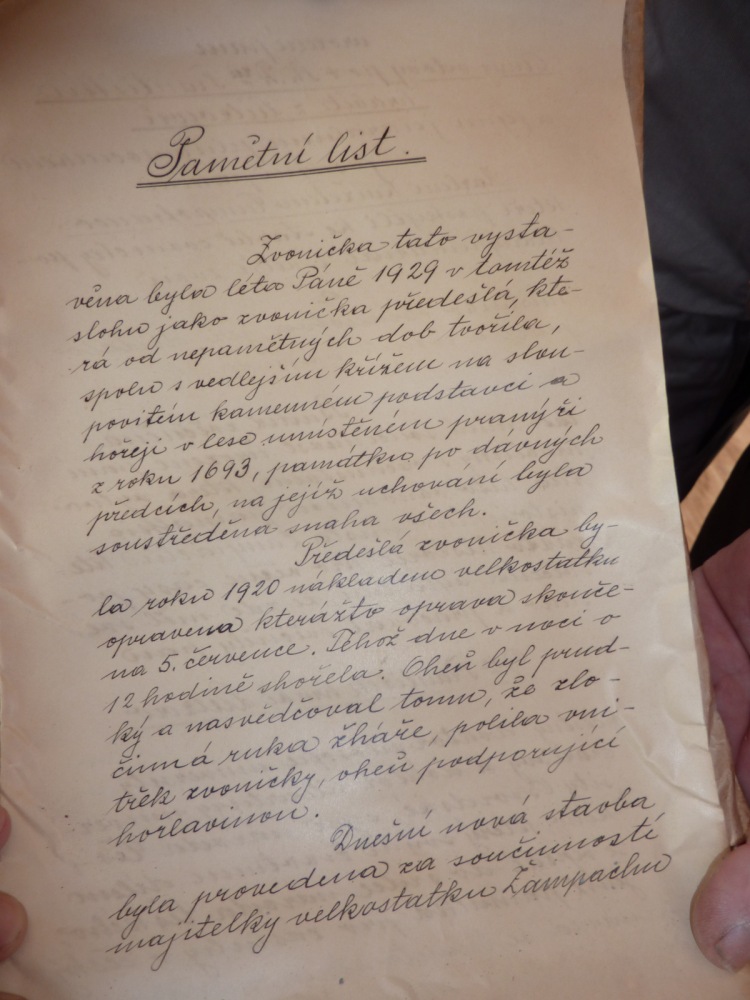 Pamětní list.
Zvonička tato vysta-
věna byla léta Páně 1929 v tomtéž
slohu jako zvonička předešlá, kte-
rá od nepamětných dob tvořila,
spolu s vedlejším křížem na slou-
povitém kamenném podstavci a
hořeji v lese umístěném pranýři
z roku 1693, památku po dávných
předcích, na jejíž uchování byla
soustředěna snaha všech.
Předešlá zvonička by-
la roku 1920 nákladem velkostatku
opravena kterážto oprava skonče-
na 5. července. Téhož dne v noci o
12 hodině shořela. Oheň byl prud-
ký a nasvědčoval tomu, že zlo-
činná ruka žháře, polila vni-
třek zvoničky, oheň podporující
hořlavinou.
Dnešní nová stavba
byla provedena za součinnosti
majitelky velkostatku Žampachu